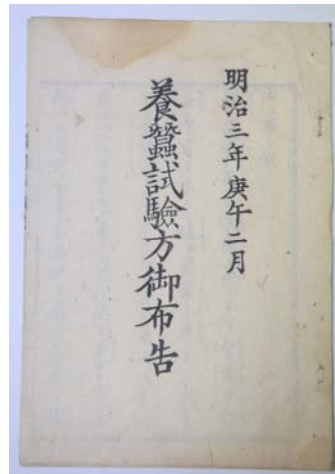 明治三年庚午二月
養蠶試驗方御布告